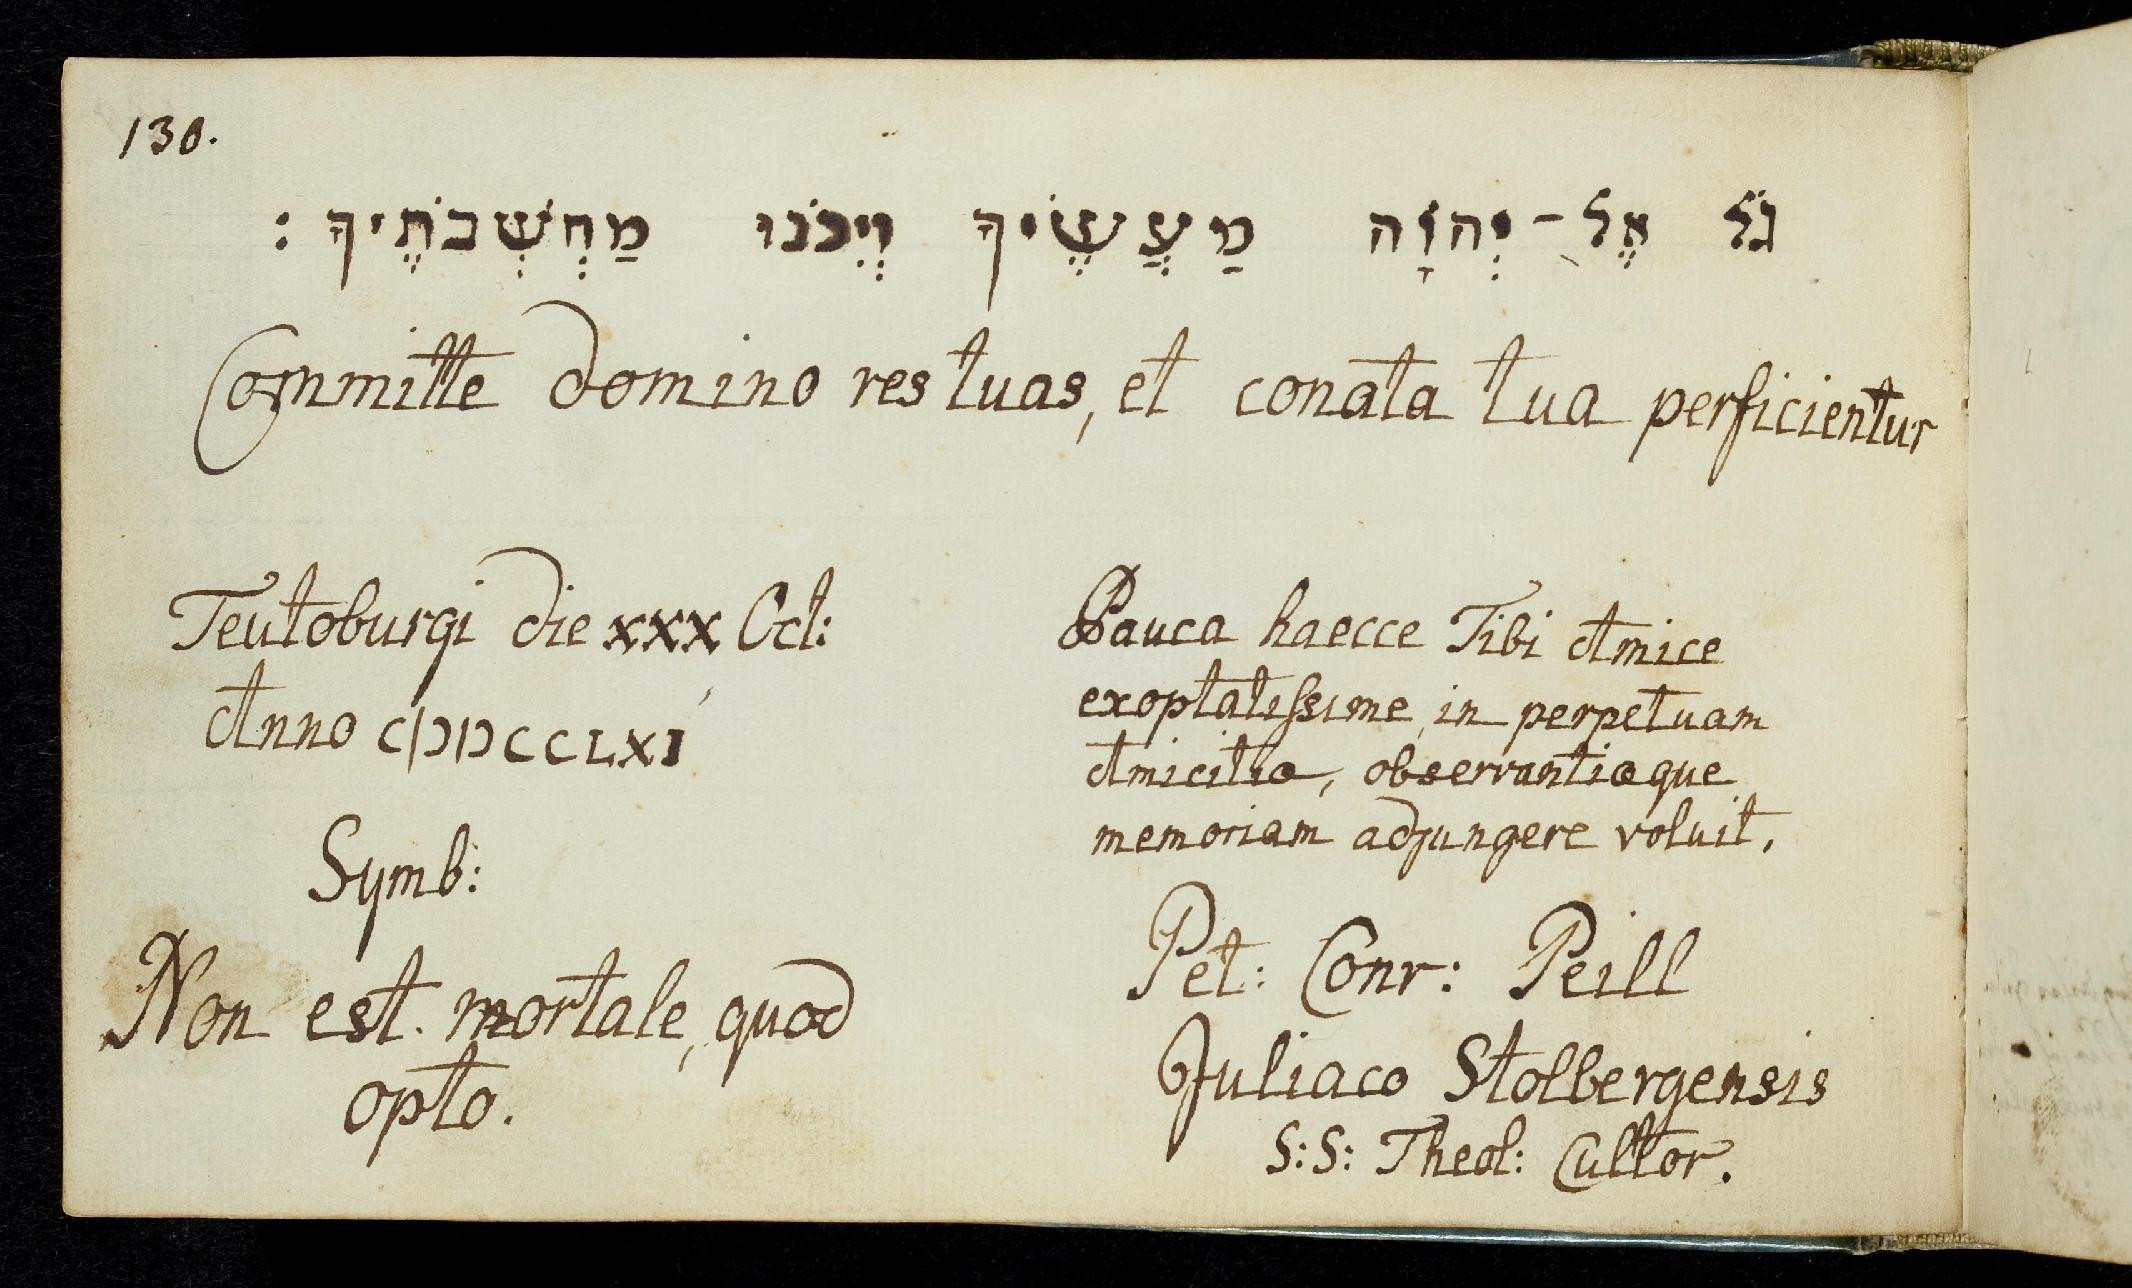 130.
גֹּל אֶל־יְהוָֹה מַעֲשֶֹיךָ וְיִכֹּנוּ מַחְשְׁבֹתֶיךָ׃
Committe domino res tuas, et conata tua perficientur
Teutoburgi die xxx Oct:
Anno CIƆIƆCCLXI
Symb:
Non est mortale, quod
opto.
Pauca haecce Tibi Amice
exoptatissime in perpetuam
Amicitiæ, observantiæque
memoriam adjungere voluit.
Pet: Conr: Peill
Juliaco Stolbergensis
S: S: Theol: Cultor.